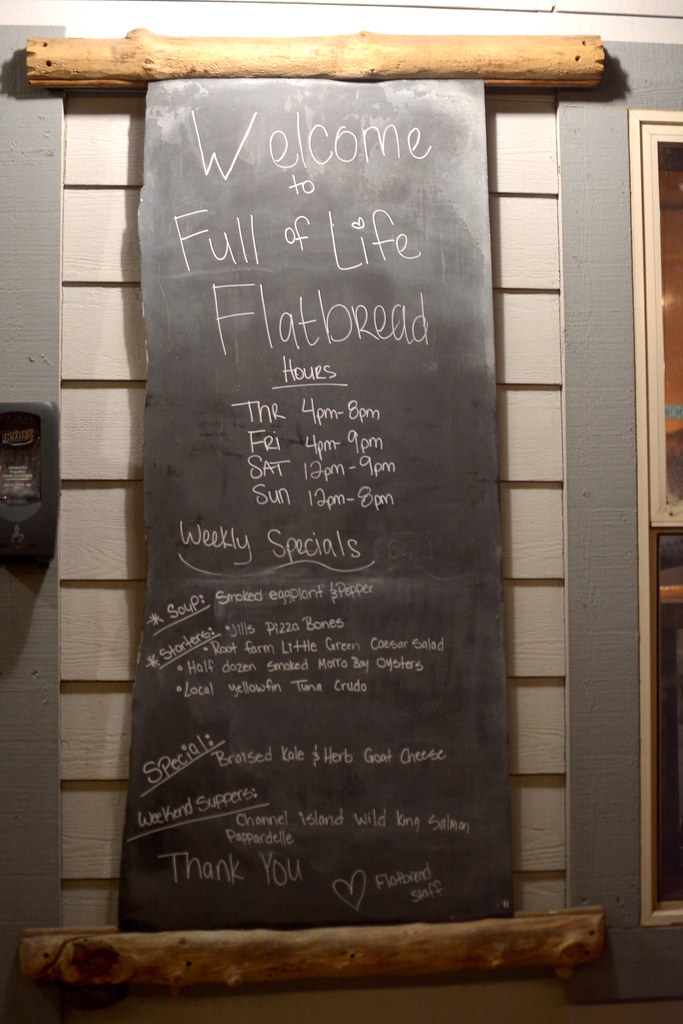 Welcome
to
Full of Life
Flatbread
Hours
Thr 4pm-8pm
Fri 4pm-9pm
Sat 12pm-9pm
Sun 12pm-8pm
Weekly Specials
* Soup: Smoked eggplant & Pepper
* Starters: • Jills Pizza Bones
• Root farm Little Green Caesar Salad
• Half dozen smoked Morro Bay Oysters
• Local yellowfin Tuna Crudo
Special: Braised Kale & Herb Goat Cheese
Weekend Suppers:
Channel island wild king Salmon
Pappardelle
Thank You
♡ Flatbread
staff